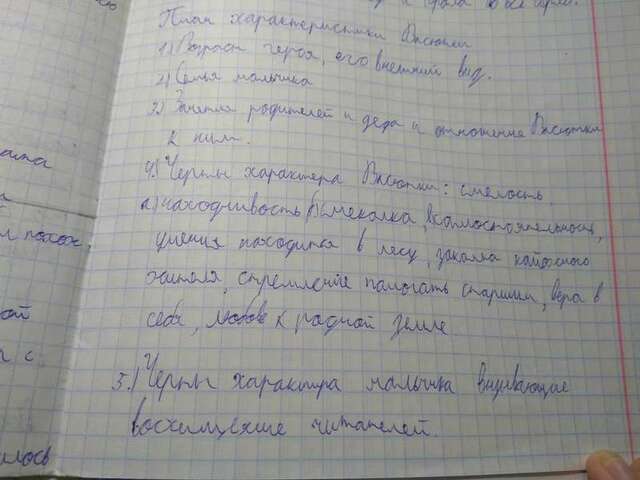 План характеристики Васютки
1) Возраст героя, его внешний вид.
2) Семья мальчика
3) Занятия родителей и деда и отношение Васютки
к ним.
4.) Черты характера Васютки: смелость
а) находчивость б) смекалка, в) самостоятельность,
умения находится в лесу, закалка таёжного
жителя, стремление помогать старшим, вера в
себя, любовь к родной земле
5.) Черты характера мальчика вызывающие
восхищение читателей.